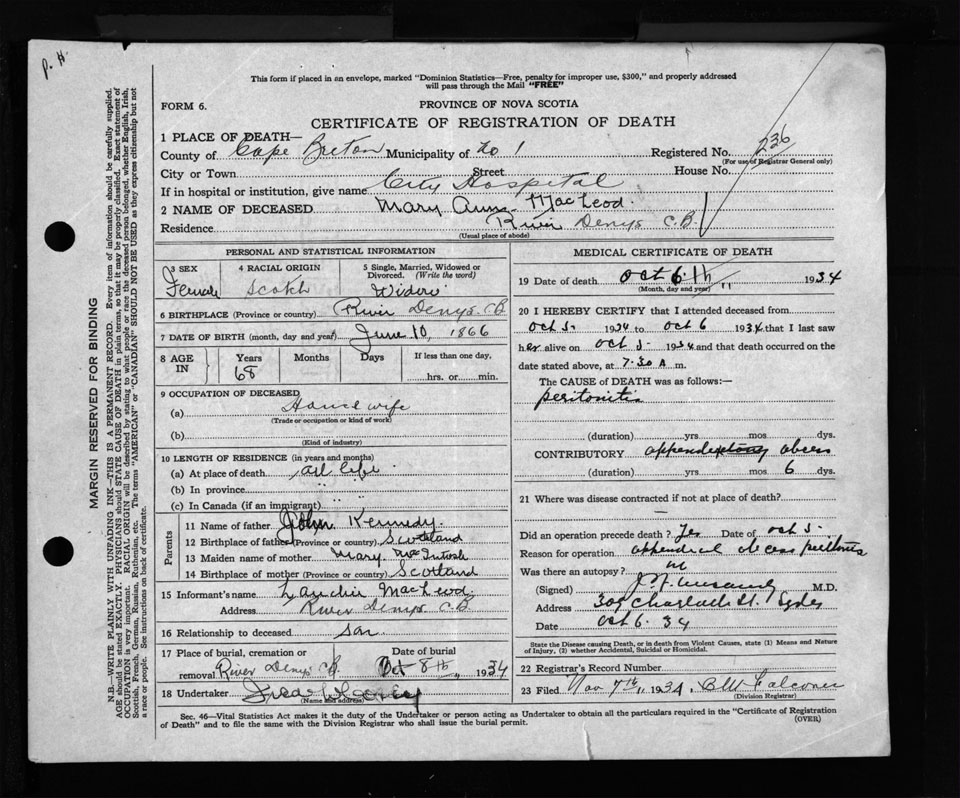 P. H.
This form if placed in an envelope, marked "Dominion Statistics—Free, penalty for improper use, $300," and properly addressed
will pass through the Mail "FREE"
FORM 6.
PROVINCE OF NOVA SCOTIA
CERTIFICATE OF REGISTRATION OF DEATH
1 PLACE OF DEATH—
County of Cape Breton Municipality of No 1 Registered No. 236
(For use of Registrar General only)
City or Town Street House No.
If in hospital or institution, give name City Hospital
2 NAME OF DECEASED Mary Ann MacLeod
Residence River Denys C.B.
(Usual place of abode)
PERSONAL AND STATISTICAL INFORMATION
3 SEX 4 RACIAL ORIGIN 5 Single, Married, Widowed or
Divorced. (Write the word)
Female Scotch Widow
6 BIRTHPLACE (Province or country) River Denys. C.B.
7 DATE OF BIRTH (month, day and year) June 10, 1866
8 AGE IN Years Months Days If less than one day,
68 hrs. or min.
9 OCCUPATION OF DECEASED
(a) House wife
(Trade or occupation or kind of work)
(b)
(Kind of industry)
10 LENGTH OF RESIDENCE (in years and months)
(a) At place of death all life
(b) In province " "
(c) In Canada (if an immigrant) " "
Parents
11 Name of father John Kennedy.
12 Birthplace of father (Province or country) Scotland
13 Maiden name of mother Mary McIntosh
14 Birthplace of mother (Province or country) Scotland
15 Informant's name Lauchie MacLeod.
Address River Denys C.B.
16 Relationship to deceased son
17 Place of burial, cremation or Date of burial
removal River Denys CB. Oct 8th, 1934
18 Undertaker Fred
(Name and address)
MEDICAL CERTIFICATE OF DEATH
19 Date of death Oct 6th 1934
(Month, day and year)
20 I HEREBY CERTIFY that I attended deceased from
Oct 5. 1934 to Oct 6 1934 that I last saw
her alive on Oct 5. 1934 and that death occurred on the
date stated above, at 7.30 A m.
The CAUSE of DEATH was as follows:—
peritonitis
(duration) yrs. mos. dys.
CONTRIBUTORY abcess
(duration) yrs. mos. 6 dys.
21 Where was disease contracted if not at place of death?
—
Did an operation precede death? Yes Date of Oct 5.
Reason for operation appendical abcess peritonitis
Was there an autopsy?
(Signed) M.D.
Address 309 Charlotte St. Sydney
Date Oct 6. 34
State the Disease causing Death, or in death from Violent Causes, state (1) Means and Nature
of Injury, (2) whether Accidental, Suicidal or Homicidal.
22 Registrar's Record Number
23 Filed Nov 7th, 1934, B W Falconer
(Division Registrar)
Sec. 46—Vital Statistics Act makes it the duty of the Undertaker or person acting as Undertaker to obtain all the particulars required in the "Certificate of Registration
of Death" and to file the same with the Division Registrar who shall issue the burial permit.
(OVER)
MARGIN RESERVED FOR BINDING
N.B.—WRITE PLAINLY WITH UNFADING INK—THIS IS A PERMANENT RECORD. Every item of information should be carefully supplied.
AGE should be stated EXACTLY. PHYSICIANS should STATE CAUSE OF DEATH in plain terms, so that it may be properly classified. Exact statement of
OCCUPATION is very important. RACIAL ORIGIN will be described by stating to what people or race the deceased person belonged, whether English, Irish,
Scottish, French, German, Russian, Ruthenian, etc. The terms "AMERICAN" or "CANADIAN" SHOULD NOT BE USED as they express citizenship but not
a race or people. See instructions on back of certificate.